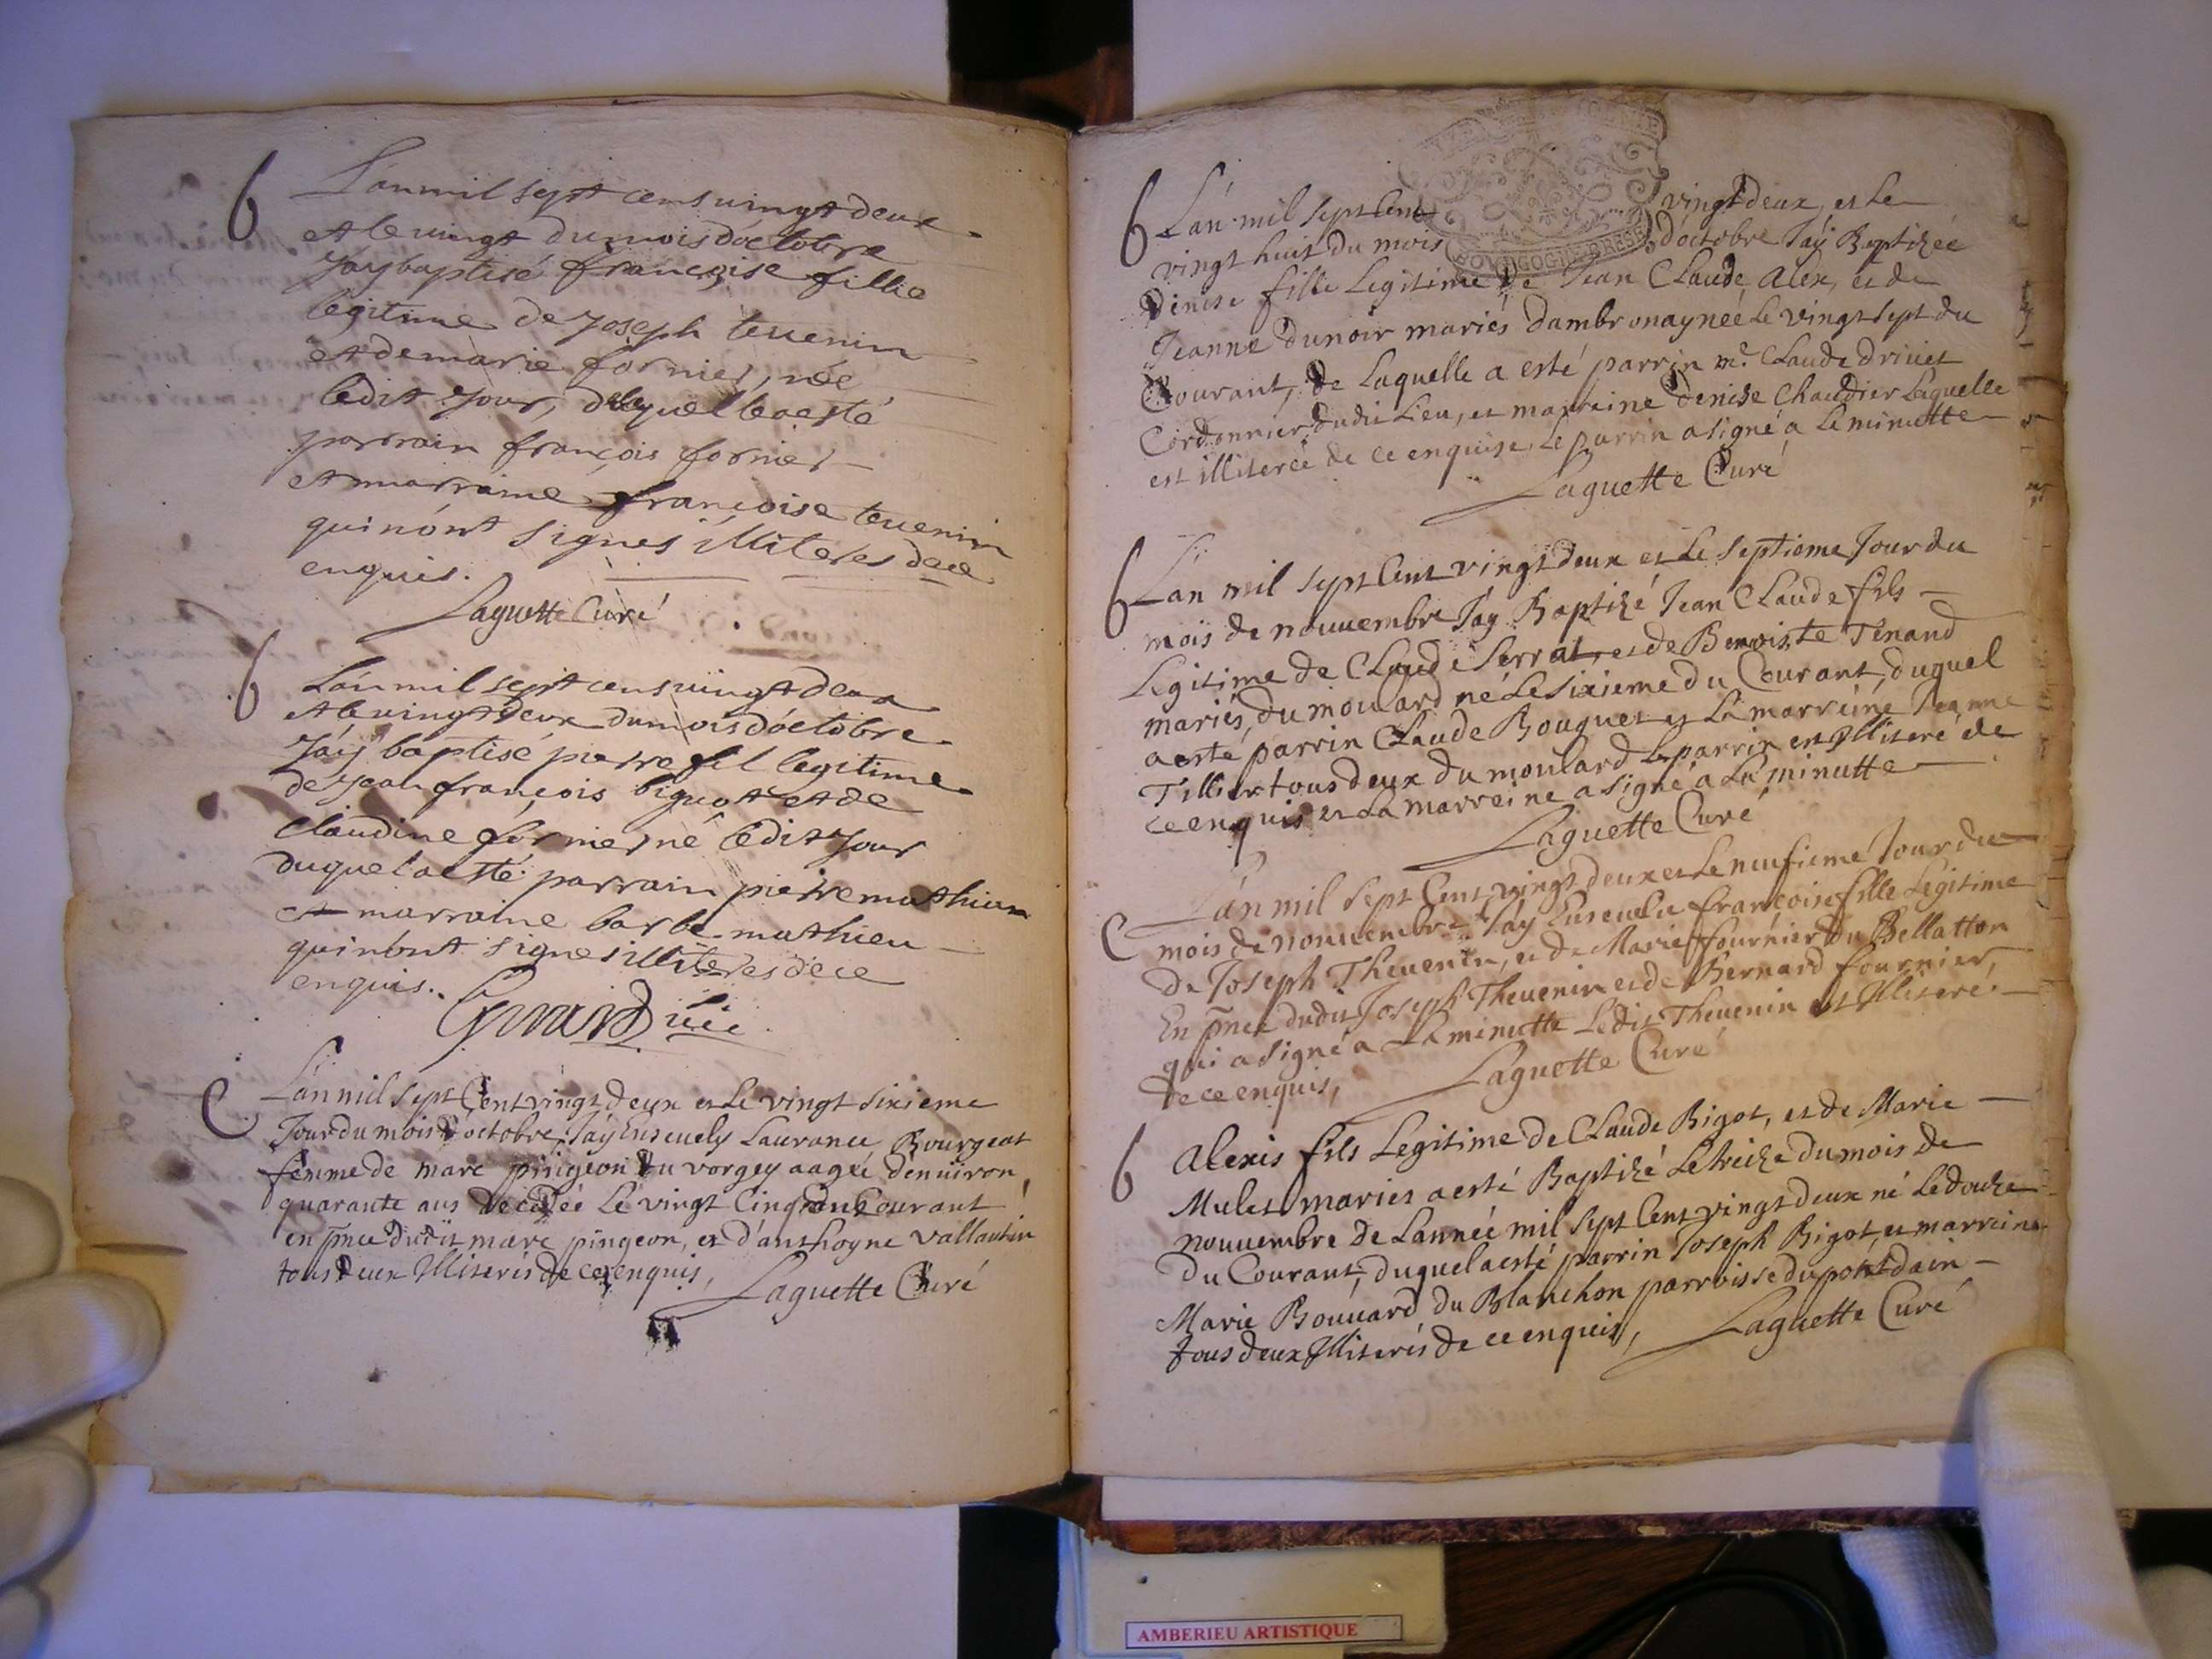 b
L'an mil sept cens vingt deux
et le vingt du mois d'octobre
Jay baptisé françoise fillie
legitime de Joseph tevenin
et de marie fornier, née
ledit Jour, de laquelle a esté
parrain françois fornier
et marraine françoise tevenin
qui n'ont signés illiteres de ce
enquis.
Laguette Curé
b
L'an mil sept cens vingt deux
et le vingt deux du mois d'octobre
Jay baptisé pierre fil legitime
de Jean françois bigot et de
Claudine fornier né ledit Jour
duquel a esté parrain pierre mathieu
et marraine barbe mathieu
qui n'ont signés illiteres de ce
enquis.
C
L'an mil sept Cent vingt deux et Le vingt sixieme
Jour du mois d'octobre Jay Ensevely Laurance Bourgeat
femme de marc pingeon du vorgey aagée denviron
quarante ans decedée Le vingt Cinq du Courant
en pnce dudit marc pingeon, et d'anthoyne vallantin
tous deux Illiterés de ce enquis,
Laguette Curé
b
L'an mil sept Cent vingt deux, et Le
vingt huit du mois d'octobre Jay Baptizée
Denise fille Legitime de Jean Claude Alex, et de
Jeanne dunoir mariés dambronay née Le vingt sept du
Courant, de Laquelle a esté parrin me. Claude drivet
Cordonnier dudit Lieu, et marreine denise Chaudier Laquelle
est illiterée de ce enquise, Le parrin a signé a Le minutte
Laguette Curé
b
L'an mil sept Cent vingt deux et Le septieme Jour du
mois de nouvembre Jay Baptizé Jean Claude fils
Legitime de Claude Serrat, et de Benoiste Tenand
mariés, du moulard né Le sixieme du Courant, duquel
a esté parrin Claude Bouguet et La marreine Jeanne
Tillier tous deux du moulard Le parrin est Illiteré de
ce enquis et La marreine a signé a La minutte
Laguette Curé
C
L'an mil sept Cent vingt deux et Le neufieme Jour du
mois de nouvembre Jay Ensevelie françoise fille Legitime
de Joseph Thevenin, et de Marie fournier du Bellatton
En pnce dudit Joseph Thevenin et de Bernard fournier,
qui a signé a La minutte Ledit Thevenin est Illiteré
de ce enquis,
Laguette Curé
b
Alexis fils Legitime de Claude Bigot, et de Marie
Mulet mariés a esté Baptizé Le treize du mois de
nouvembre de L'année mil sept Cent vingt deux né Le douze
du Courant, duquel a esté parrin Joseph Bigot, et marreine
Marie Bouvard du Blanchon parroisse du pont dain
tous deux Illiterés de ce enquis,
Laguette Curé
AMBERIEU ARTISTIQUE